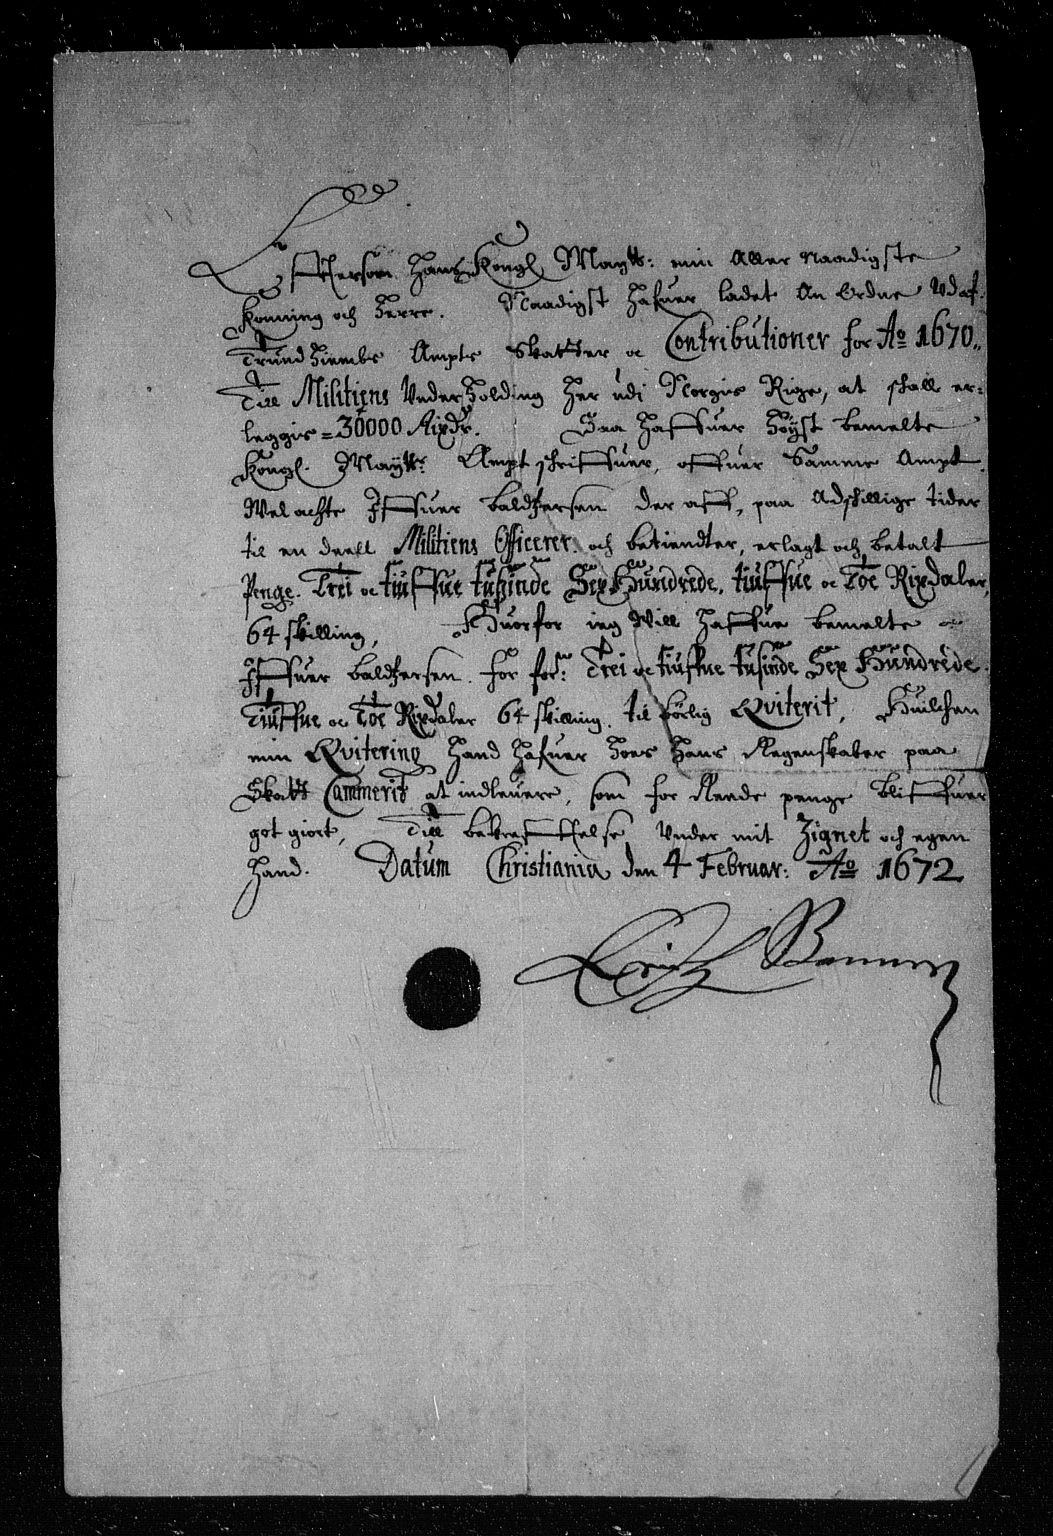 Effttersom Hans Kongl Maytt: min Aller Naadigste
Konning och Herre. Naadigst hafuer ladet An Ordne Vdaf.
Trundhiembs Ampts Skatter oc Contributioner for Ao 1670„
Till Militiens Vnderholding her udi Norgis Rige, at schall er=
leggis = 30000 Rixdr. Saa haffuer høyst bemelte
Kongl. Maytts Ampt schriffuer, offuer Samme Ampt.
Wel achte Iffuer baldtzersen der aff, paa Adschillige tider
til en deell Militiens Officerer. och betiendter, erlagt och betalt
Penge. Trei oc tiuffue tusinde Sex Hundrede. tiuffue oc Toe Rixdaler,
64 skilling, Huorfor ieg Will haffue bemelte
Iffuer baldtzersen. for forn: Trei oc tiuffue tusinde Sex Hundrede.
Tiuffue oc Toe Rixdaler 64 skilling. til børlig Qviterit, Huilchen
min Qvitering hand hafuer hoes hans Regenskaber paa
Skatt Cammerit at indleuere, som for Reede penge bliffuer
got giort, Till bekrefftelse Vnder mit Zignet och egen
Hand. Datum Christiania den 4 Februar: Ao 1672